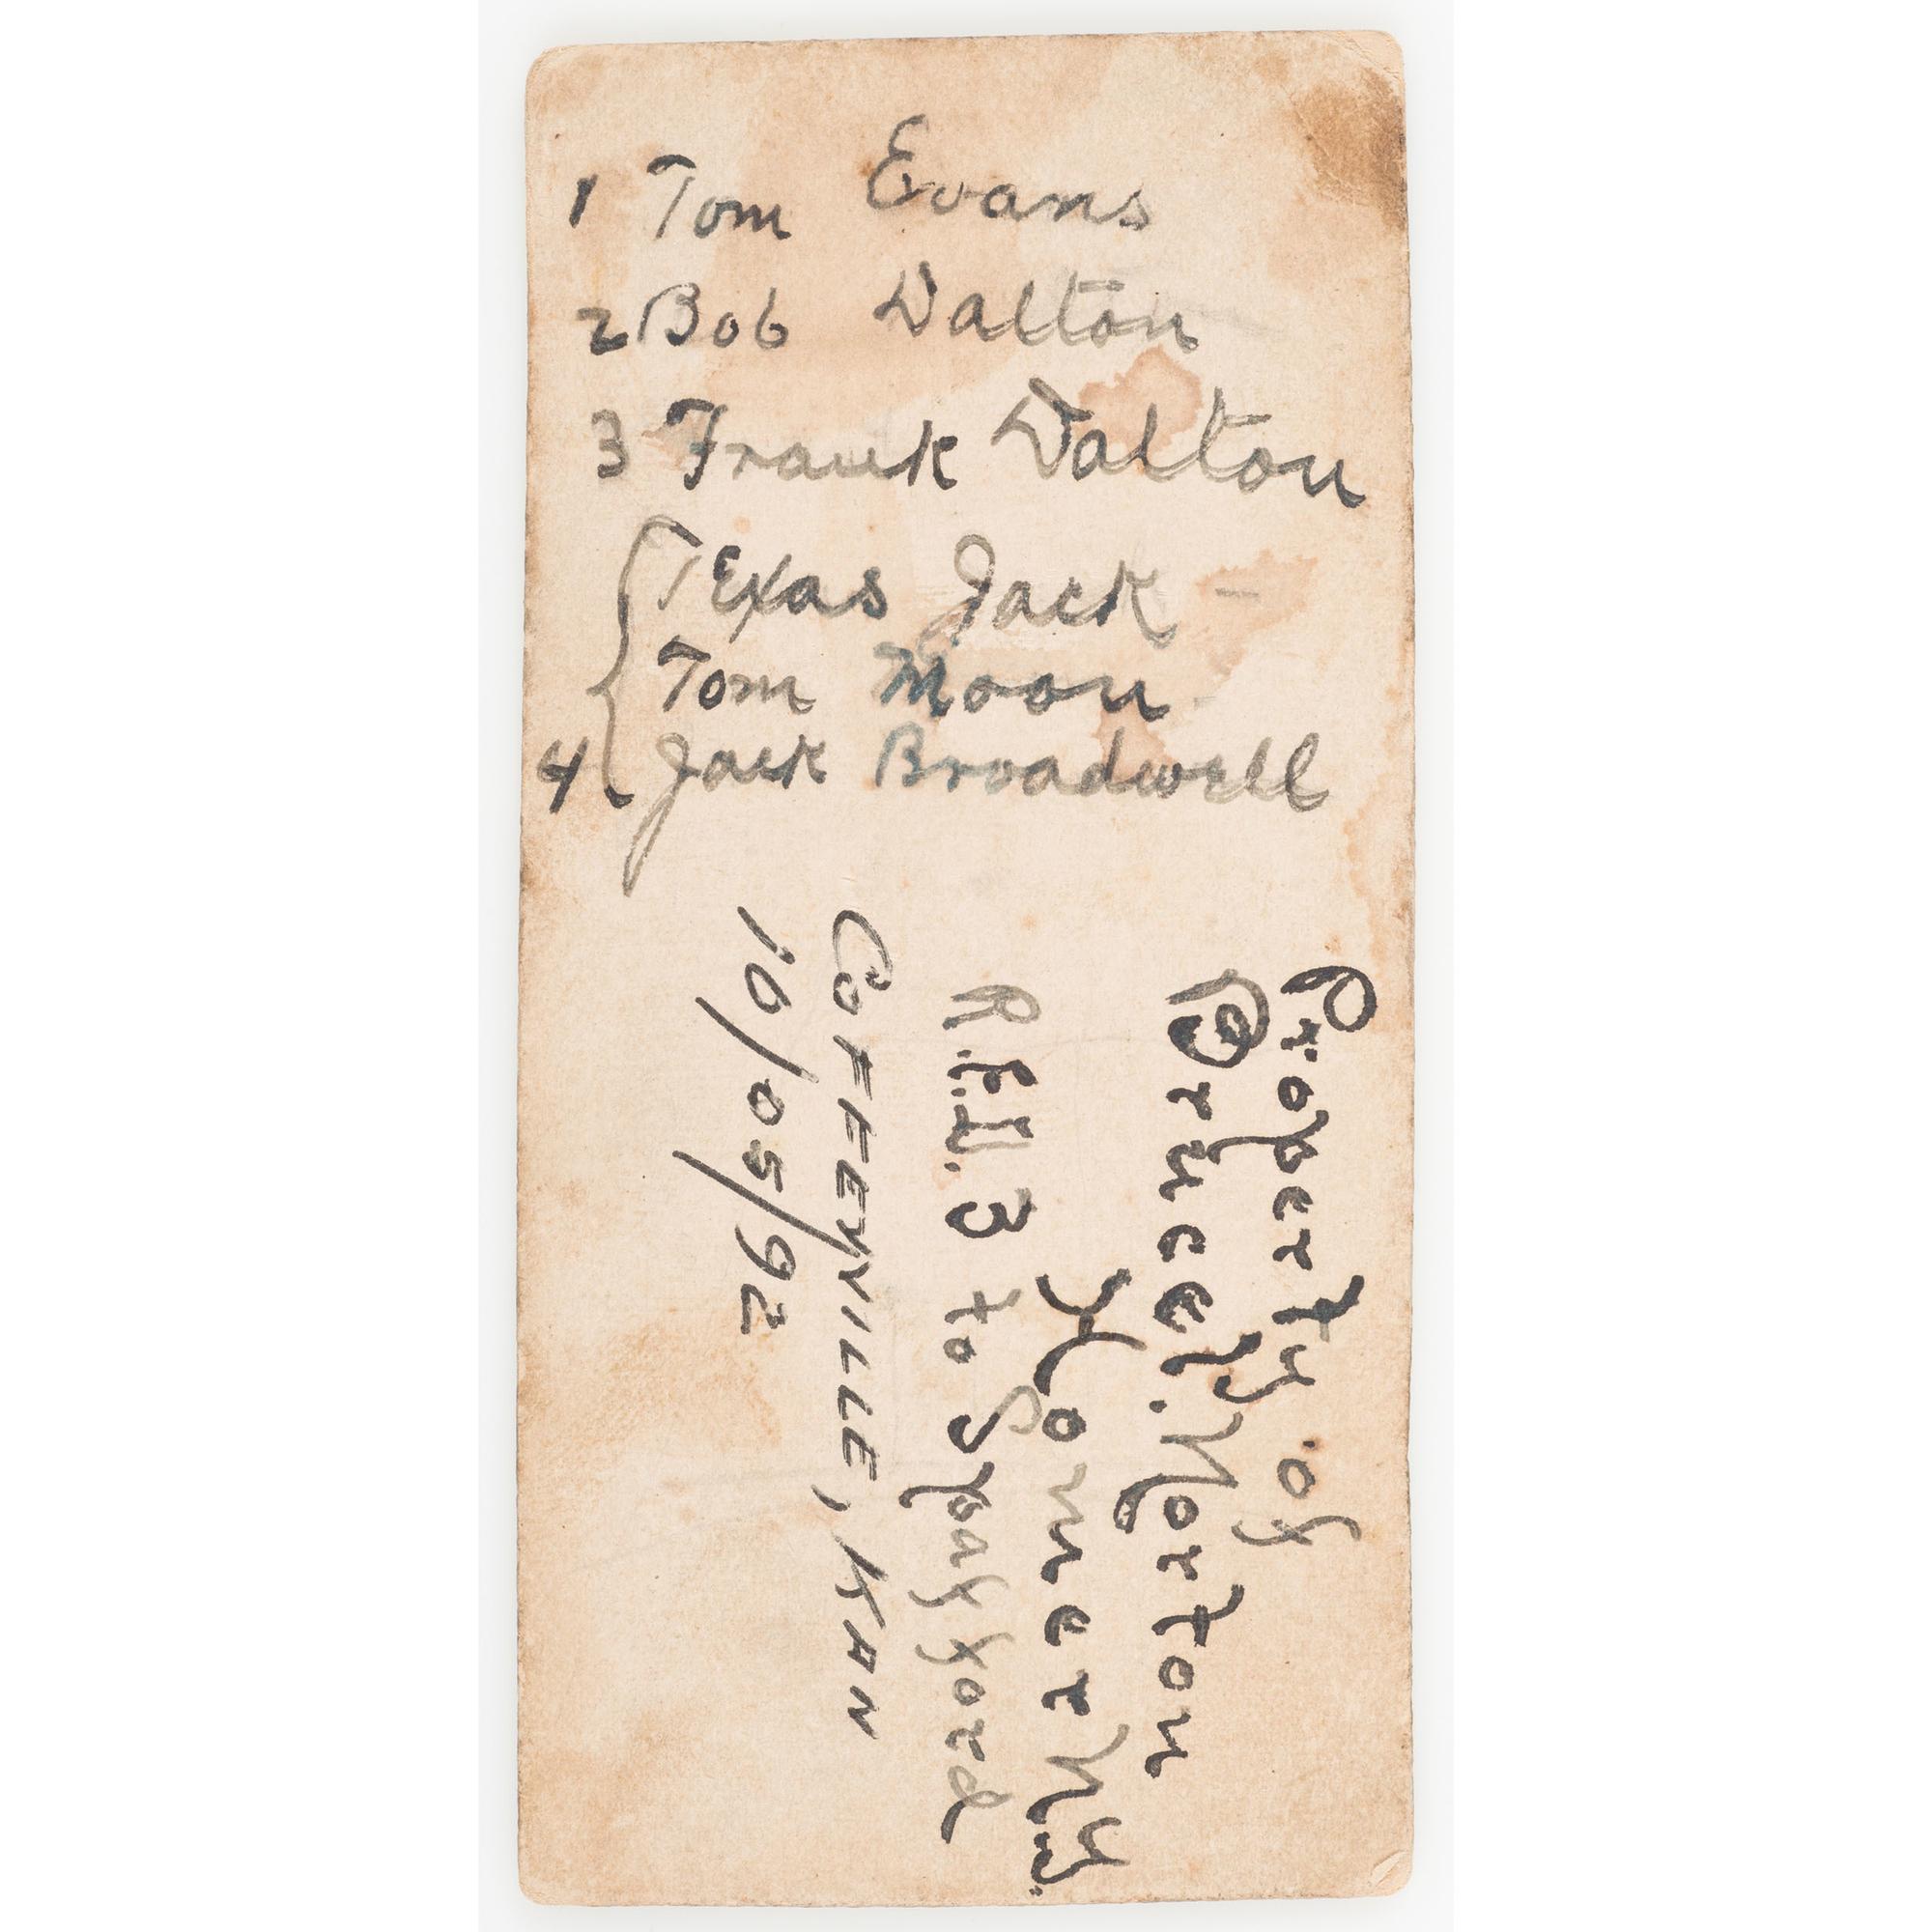 1 Tom Evans
2 Bob Dalton
3 Frank Dalton
Texas Jack -
Tom Moon
4 Jack Broadwell
Property of
Bruce L. Horton
Homer N.Y.
R.F.D. 3 to Spafford
COFFEYVILLE, KAN
10/05/92